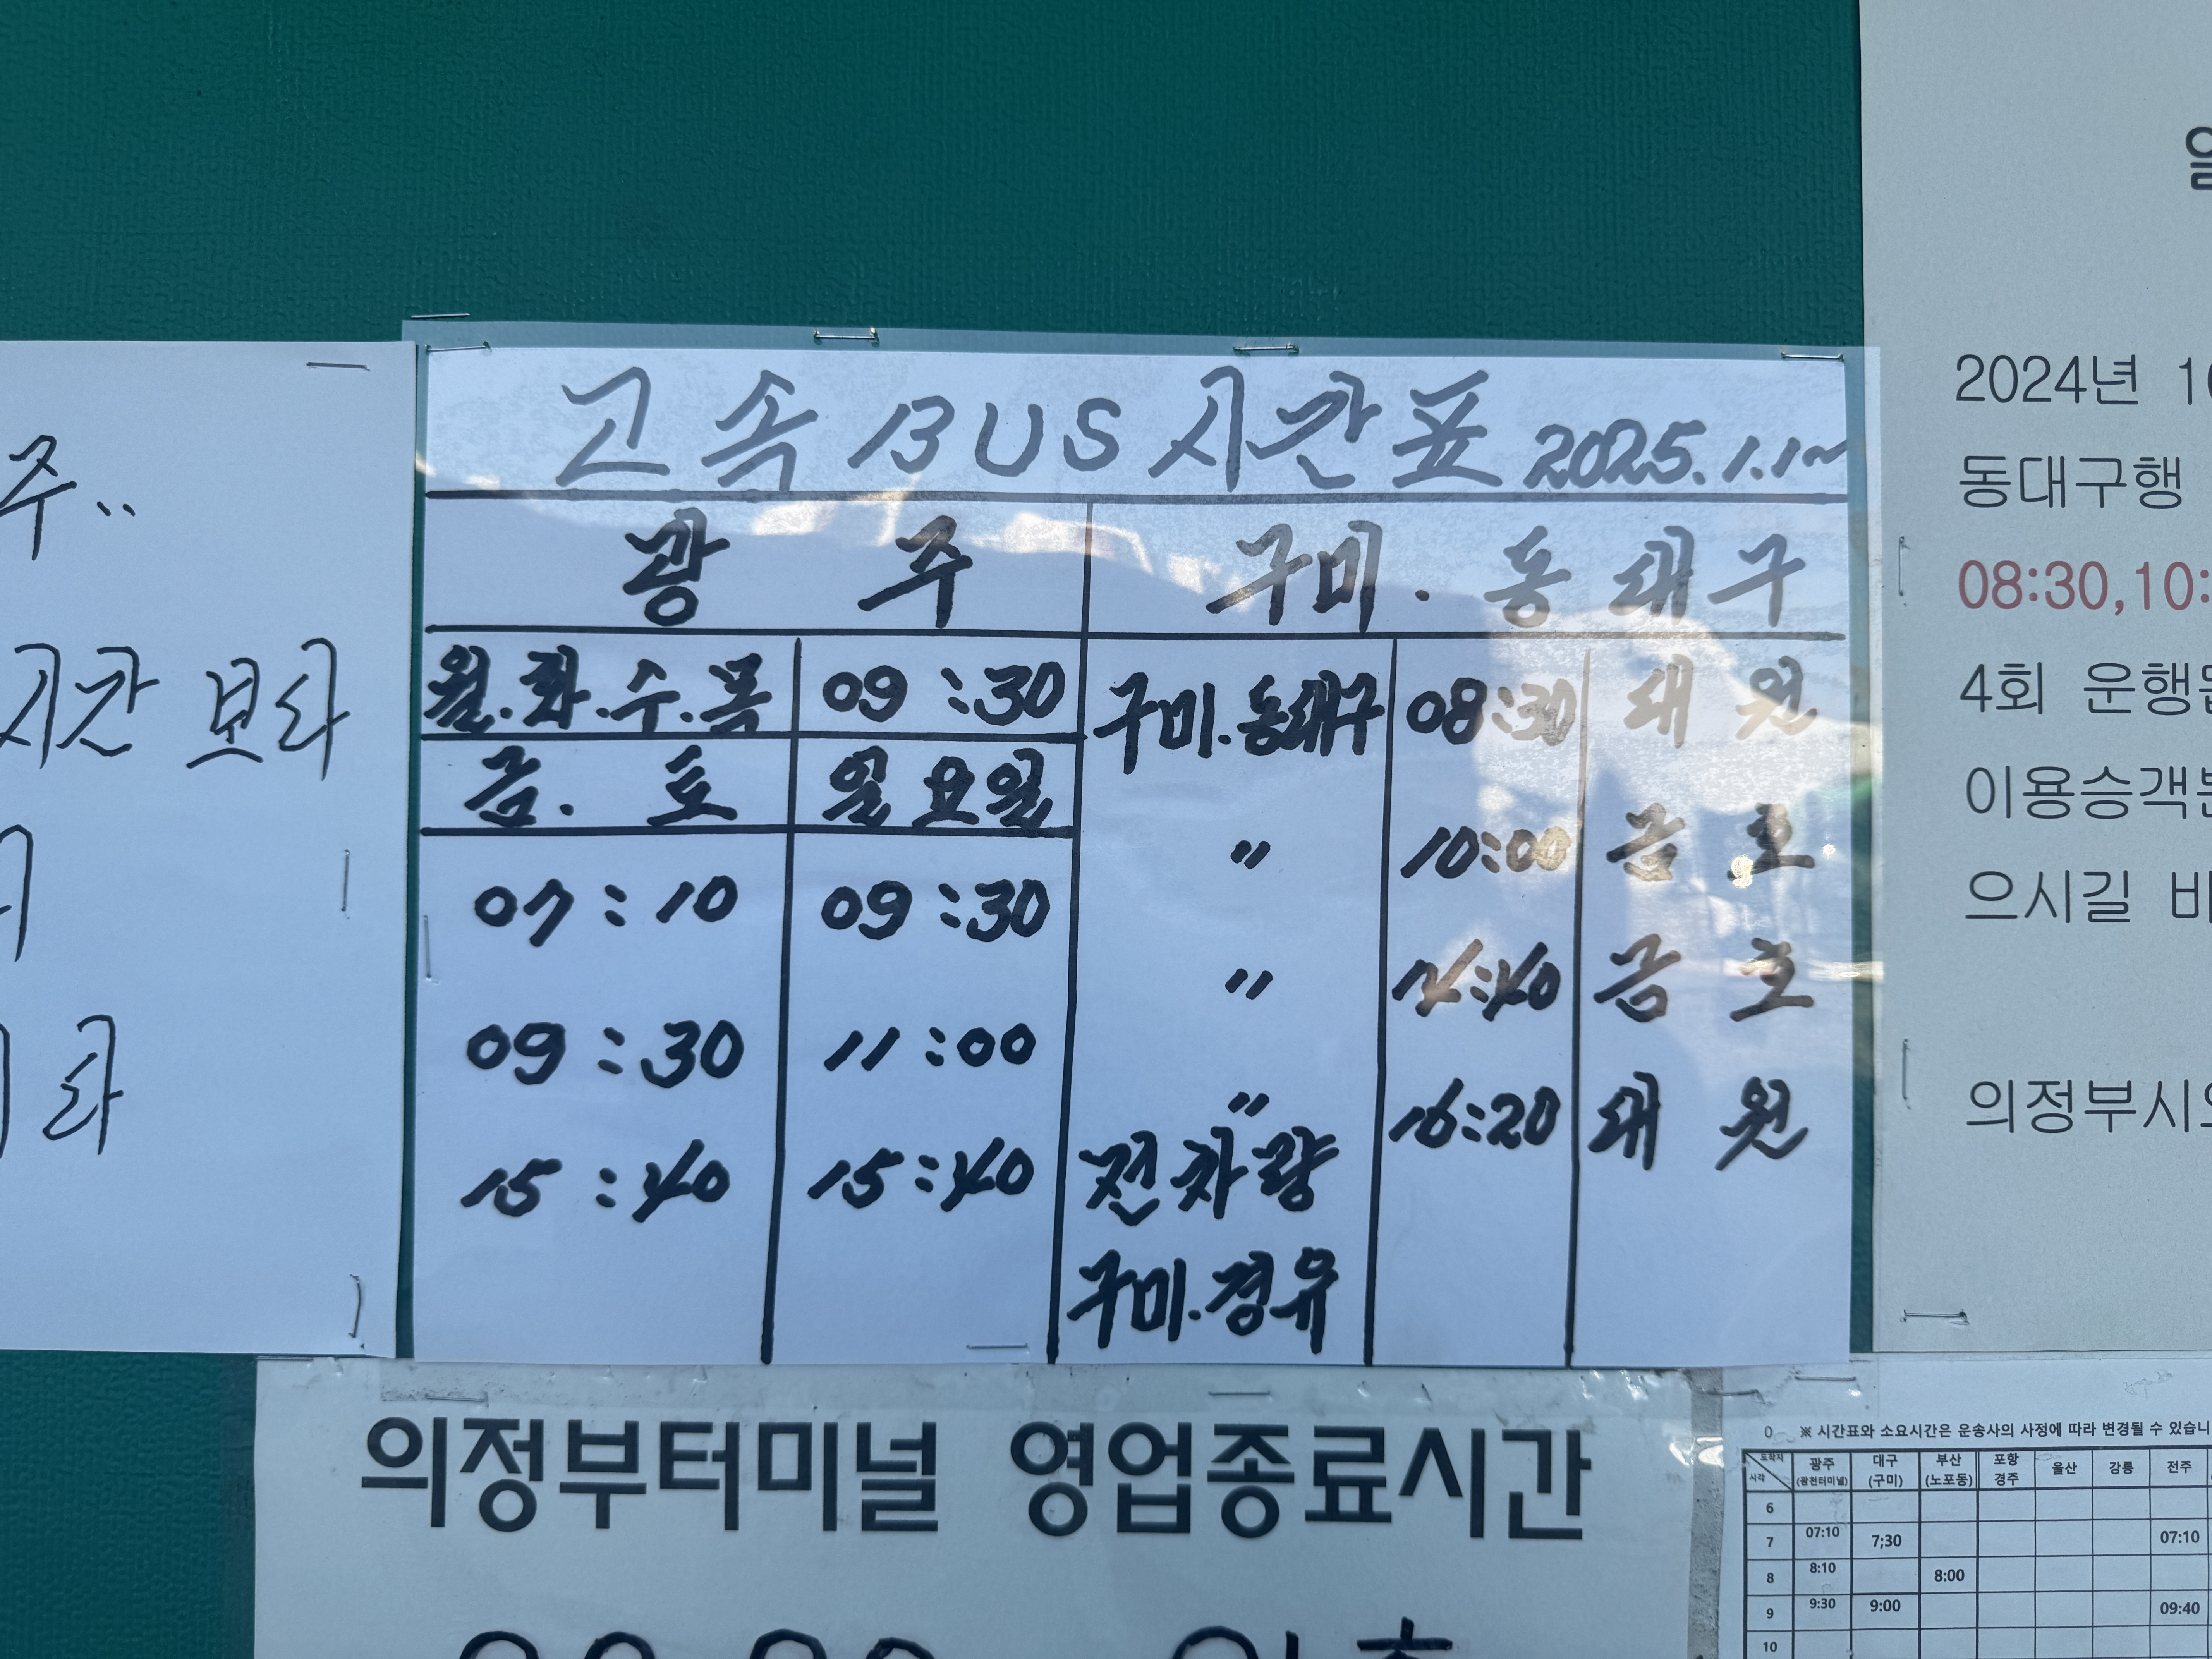 고속 BUS 시간표 2025.1.1~
광주 구미.동대구
월.화.수.목 09:30
금.토 일요일
07:10 09:30
09:30 11:00
15:40 15:40
구미.동대구 08:30 대원
〃 10:00 금호
〃 14:40 금호
〃 16:20 대원
전차량
구미.경유
주..
시간 보다
2024년 10
동대구행
08:30,10:
4회 운행
이용승객
으시길 바
의정부시
의정부터미널 영업종료시간
※ 시간표와 소요시간은 운송사의 사정에 따라 변경될 수 있습니
도착지 시각 광주 (광천터미널) 대구 (구미) 부산 (노포동) 포항 경주 울산 강릉 전주
6
7 07:10 7;30 07:10
8 8:10 8:00
9 9:30 9:00 09:40
10